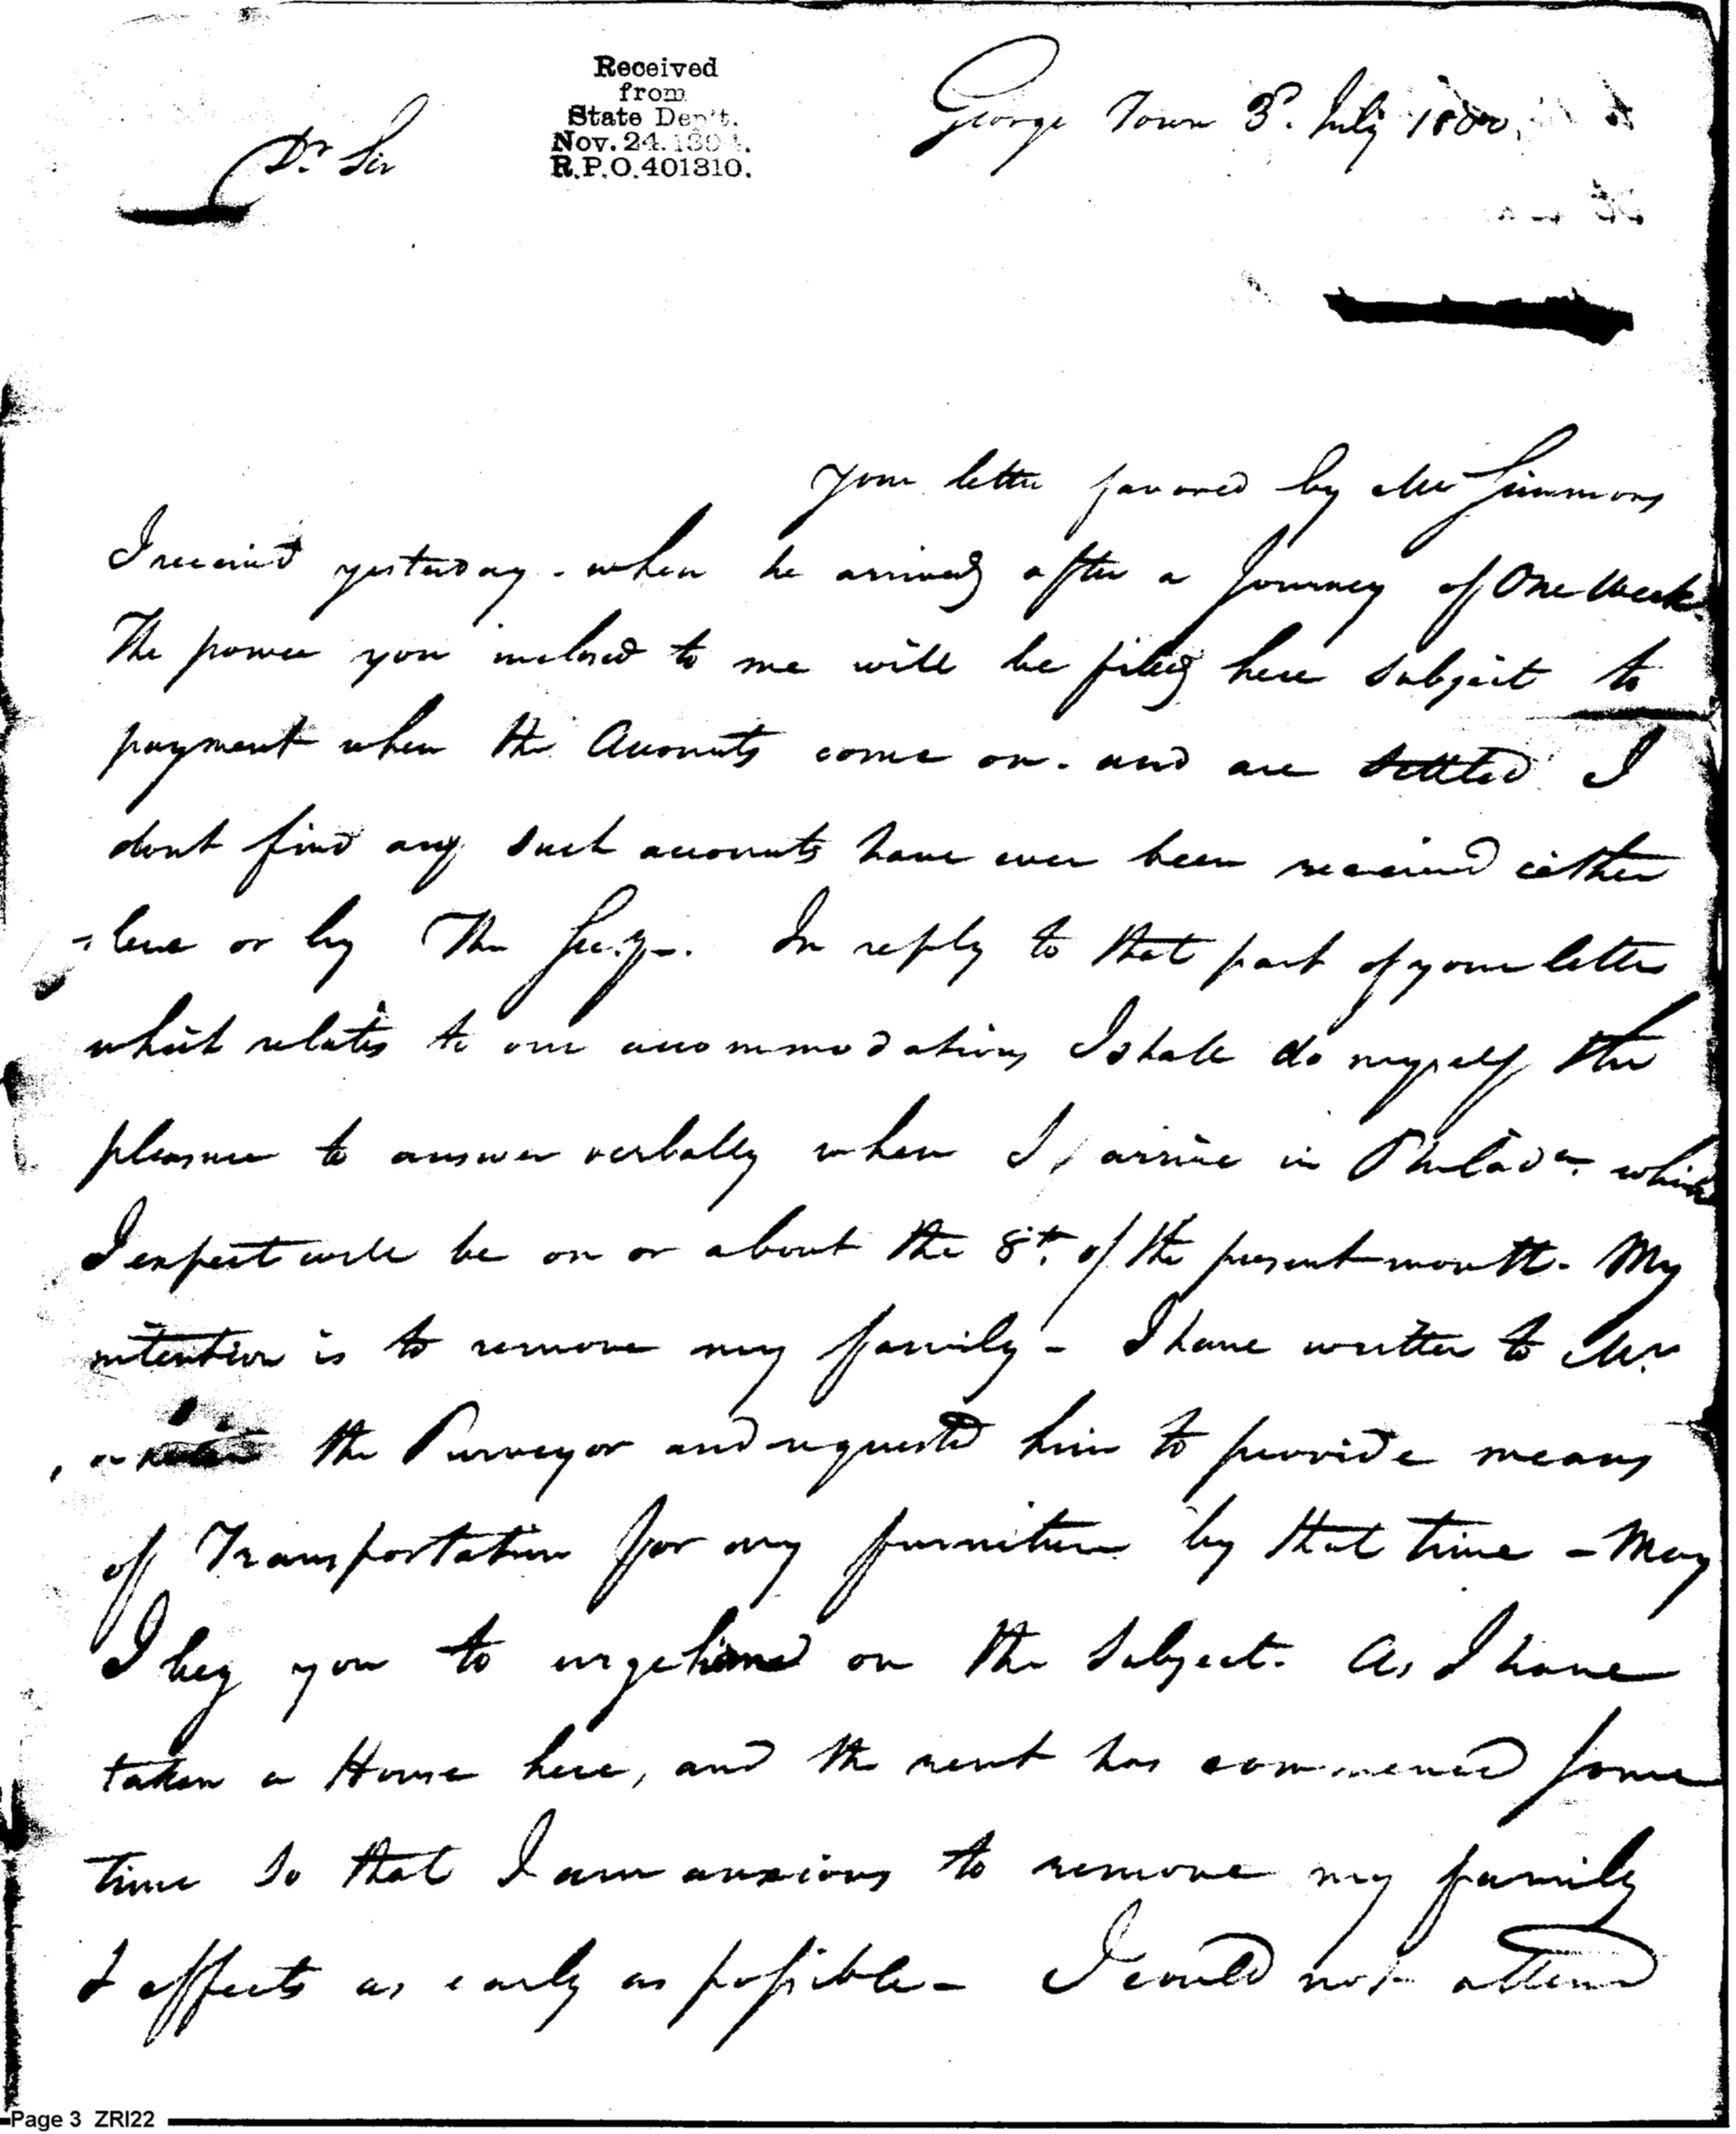 Received
from
State Dep't.
Nov. 24. 1894.
R.P.O. 401310.
George Town 3d. July 1800.
Dr Sir
Your letter favored by Mr Simmons
I received yesterday - when he arrived after a Journey of One Week.
The power you inclosed to me will be filed here subject to
payment when the Accounts come on - and are settled I
dont find any such accounts have ever been received either
here or by The Secy. In reply to that part of your letter
which relates to our accommodations I shall do myself the
pleasure to answer verbally when I arrive in Philada. which
I expect will be on or about the 8th. of the present month - My
intention is to remove my family - I have written to Mr.
the Purveyor and requested him to provide means
of Transportation for my furniture by that time - May
I beg you to urge him on the Subject. As I have
taken a House here, and the rent has commenced some
time so that I am anxious to remove my family
& effects as early as possible - I could not attend
Page 3 ZRI22